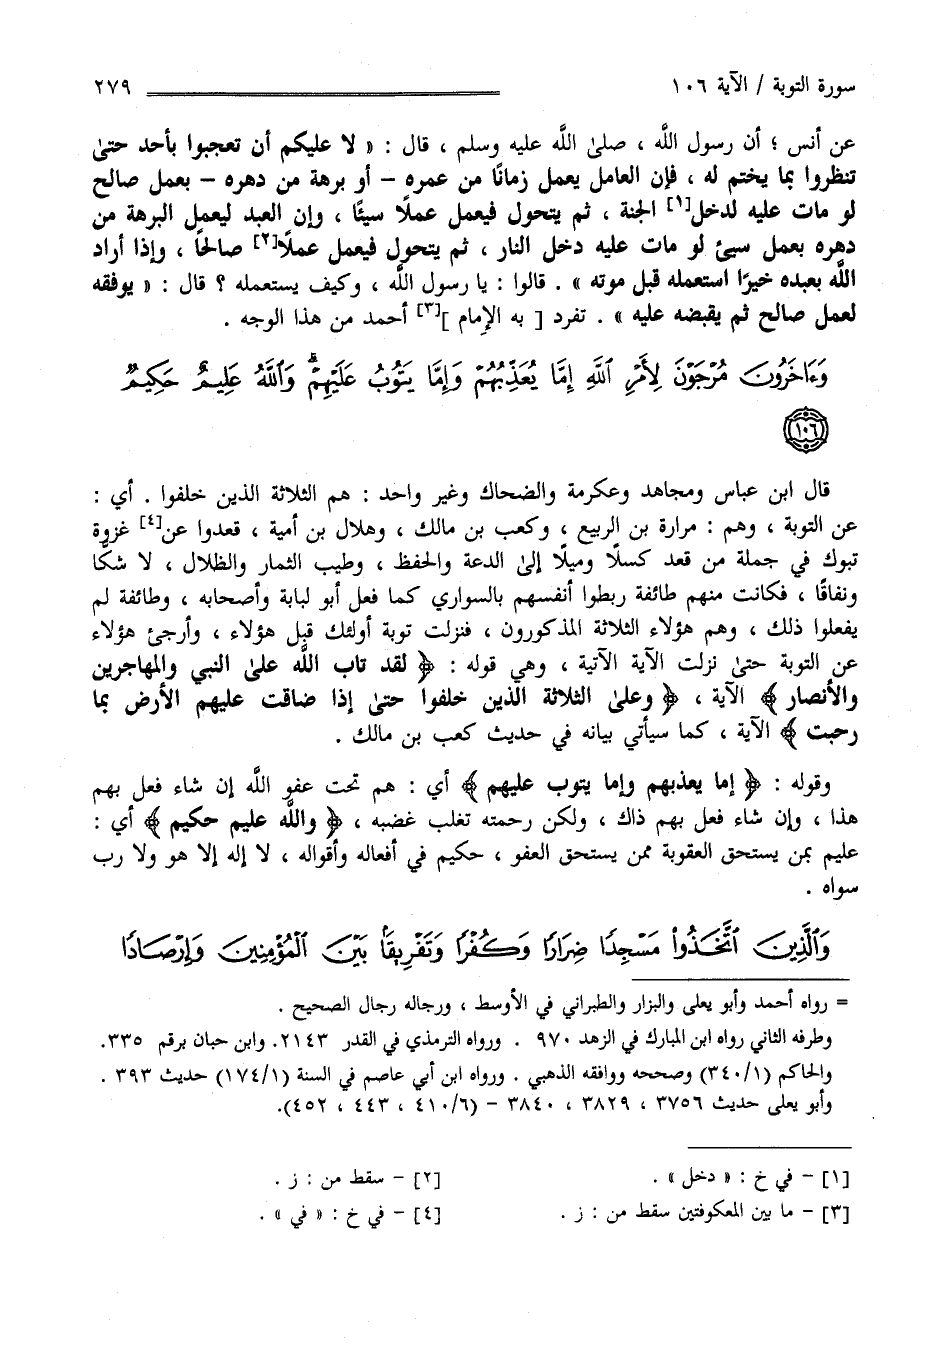 سورة التوبة / الآية ١٠٦ ٢٧٩
عن أنس ؛ أن رسول اللَّه ، صلىٰ اللَّه عليه وسلم ، قال : « لا عليكم أن تعجبوا بأحد حتىٰ
تنظروا بما يختم له ، فإن العامل يعمل زمانًا من عمره – أو برهة من دهره – بعمل صالح
لو مات عليه لدخل[١] الجنة ، ثم يتحول فيعمل عملًا سيئًا ، وإن العبد ليعمل البرهة من
دهره بعمل سيئ لو مات عليه دخل النار ، ثم يتحول فيعمل عملًا[٢] صالحًا ، وإذا أراد
اللَّه بعبده خيرًا استعمله قبل موته » . قالوا : يا رسول اللَّه ، وكيف يستعمله ؟ قال : « يوفقه
لعمل صالح ثم يقبضه عليه » . تفرد [ به الإمام ][٣] أحمد من هذا الوجه .
وَءَاخَرُونَ مُرْجَوْنَ لِأَمْرِ ٱللَّهِ إِمَّا يُعَذِّبُهُمْ وَإِمَّا يَتُوبُ عَلَيْهِمْ ۗ وَٱللَّهُ عَلِيمٌ حَكِيمٌ
١٠٦
قال ابن عباس ومجاهد وعكرمة والضحاك وغير واحد : هم الثلاثة الذين خلفوا . أي :
عن التوبة ، وهم : مرارة بن الربيع ، وكعب بن مالك ، وهلال بن أمية ، قعدوا عن[٤] غزوة
تبوك في جملة من قعد كسلًا وميلًا إلىٰ الدعة والحفظ ، وطيب الثمار والظلال ، لا شكًّا
ونفاقًا ، فكانت منهم طائفة ربطوا أنفسهم بالسواري كما فعل أبو لبابة وأصحابه ، وطائفة لم
يفعلوا ذلك ، وهم هؤلاء الثلاثة المذكورون ، فنزلت توبة أولئك قبل هؤلاء ، وأرجئ هؤلاء
عن التوبة حتىٰ نزلت الآية الآتية ، وهي قوله : ﴿ لقد تاب اللَّه علىٰ النبي والمهاجرين
والأنصار ﴾ الآية ، ﴿ وعلىٰ الثلاثة الذين خلفوا حتىٰ إذا ضاقت عليهم الأرض بما
رحبت ﴾ الآية ، كما سيأتي بيانه في حديث كعب بن مالك .
وقوله : ﴿ إما يعذبهم وإما يتوب عليهم ﴾ أي : هم تحت عفو اللَّه إن شاء فعل بهم
هذا ، وإن شاء فعل بهم ذاك ، ولكن رحمته تغلب غضبه ، ﴿ واللَّه عليم حكيم ﴾ أي :
عليم بمن يستحق العقوبة ممن يستحق العفو ، حكيم في أفعاله وأقواله ، لا إله إلا هو ولا رب
سواه .
وَٱلَّذِينَ ٱتَّخَذُوا۟ مَسْجِدًا ضِرَارًا وَكُفْرًا وَتَفْرِيقًۢا بَيْنَ ٱلْمُؤْمِنِينَ وَإِرْصَادًا
= رواه أحمد وأبو يعلى والبزار والطبراني في الأوسط ، ورجاله رجال الصحيح .
وطرفه الثاني رواه ابن المبارك في الزهد ٩٧٠ . ورواه الترمذي في القدر ٢١٤٣. وابن حبان برقم ٣٣٥.
والحاكم (٣٤٠/١) وصححه ووافقه الذهبي . ورواه ابن أبي عاصم في السنة (١٧٤/١) حديث ٣٩٣ .
وأبو يعلى حديث ٣٧٥٦ ، ٣٨٢٩ ، ٣٨٤٠ – (٤١٠/٦ ، ٤٤٣ ، ٤٥٢).
[١] – في خ : « دخل » . [٢] – سقط من : ز .
[٣] – ما بين المعكوفتين سقط من : ز . [٤] – في خ : « في » .